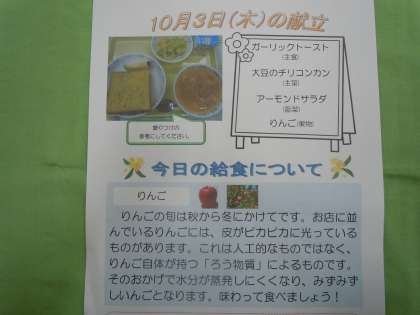 10月3日(木)の献立
ガーリックトースト
(主食)
大豆のチリコンカン
(主菜)
アーモンドサラダ
(副菜)
りんご(果物)
盛りつけの
参考にしてください。
今日の給食について
りんご
りんごの旬は秋から冬にかけてです。お店に並
んでいるりんごには、皮がピカピカに光っている
ものがあります。これは人工的なものではなく、
りんご自体が持つ「ろう物質」によるものです。
そのおかげで水分が蒸発しにくくなり、みずみず
しいんごとなります。味わって食べましょう!